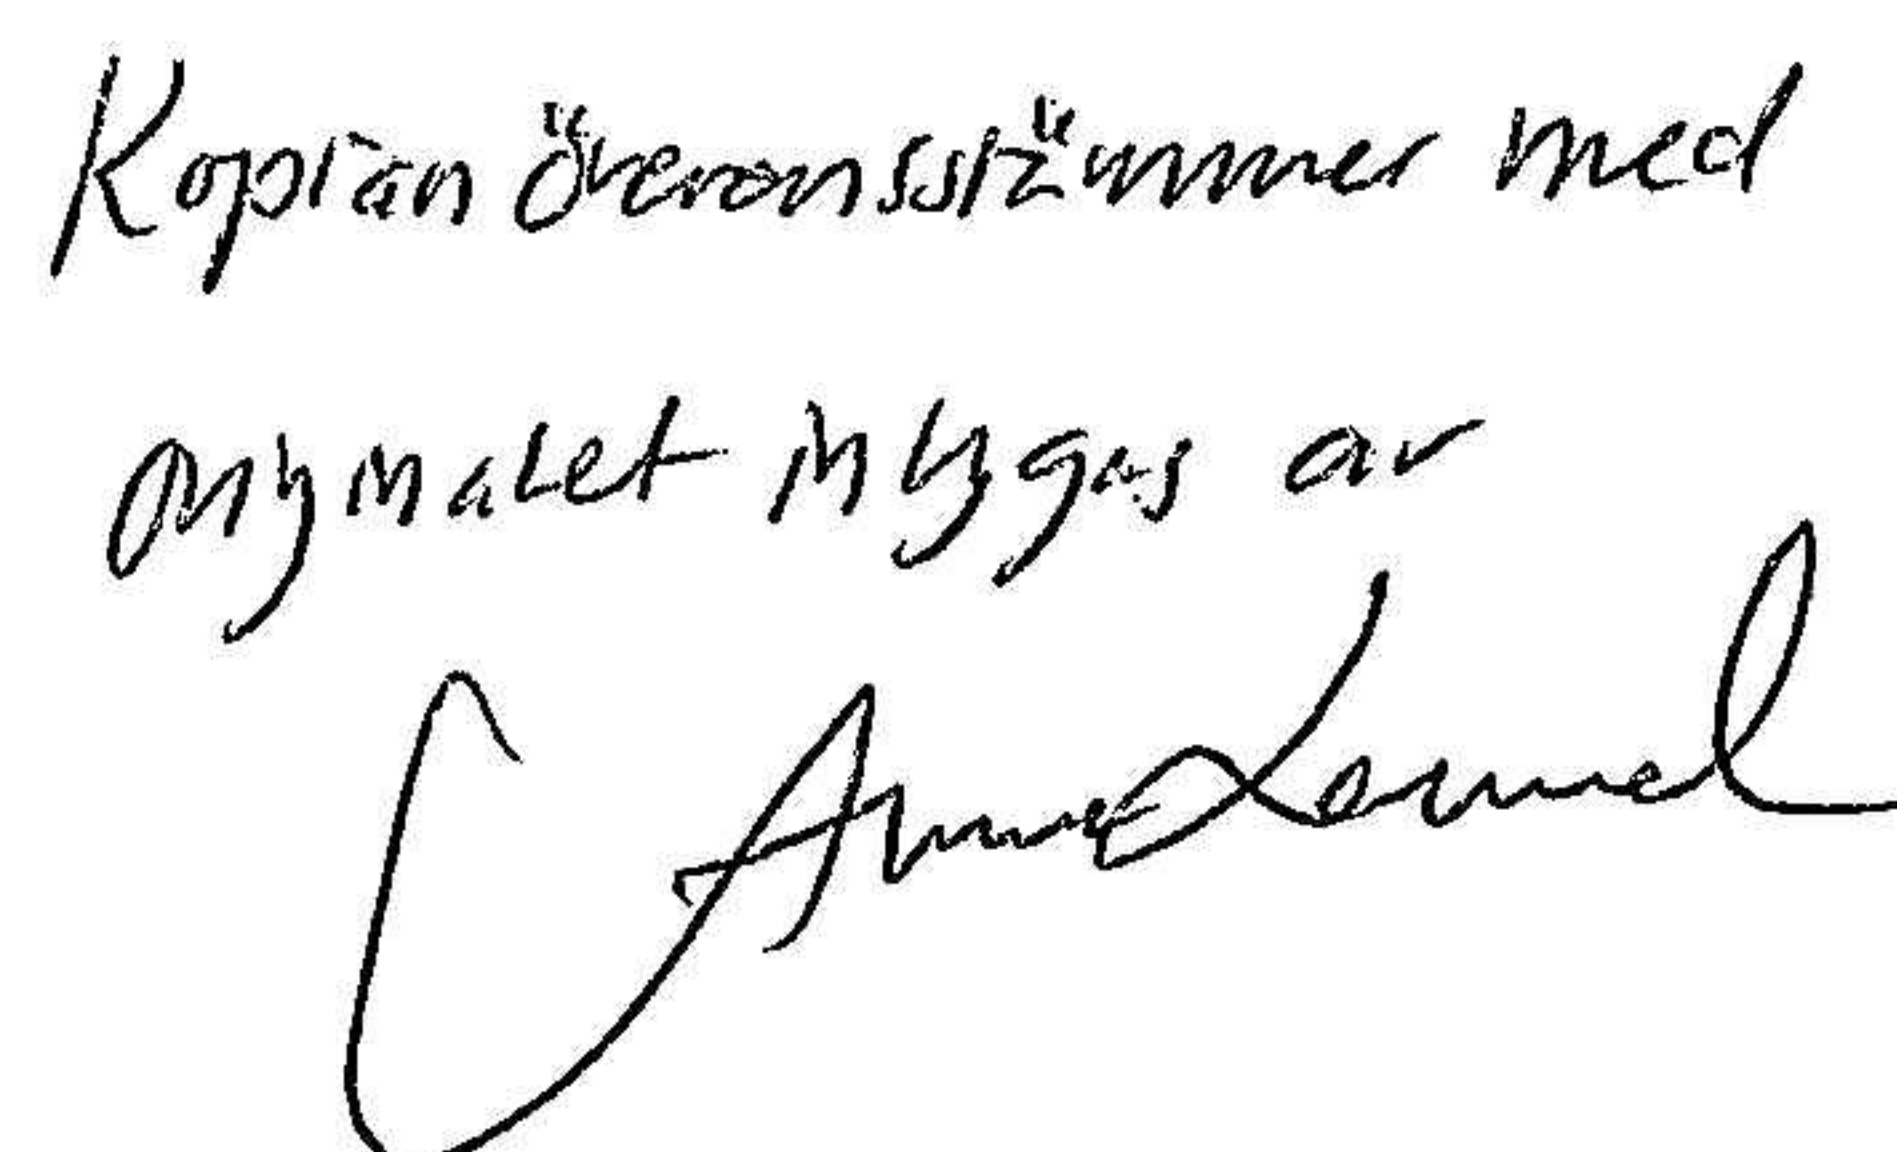 Kopian överensstämmer med
originalet intygas av
Anna Lennel